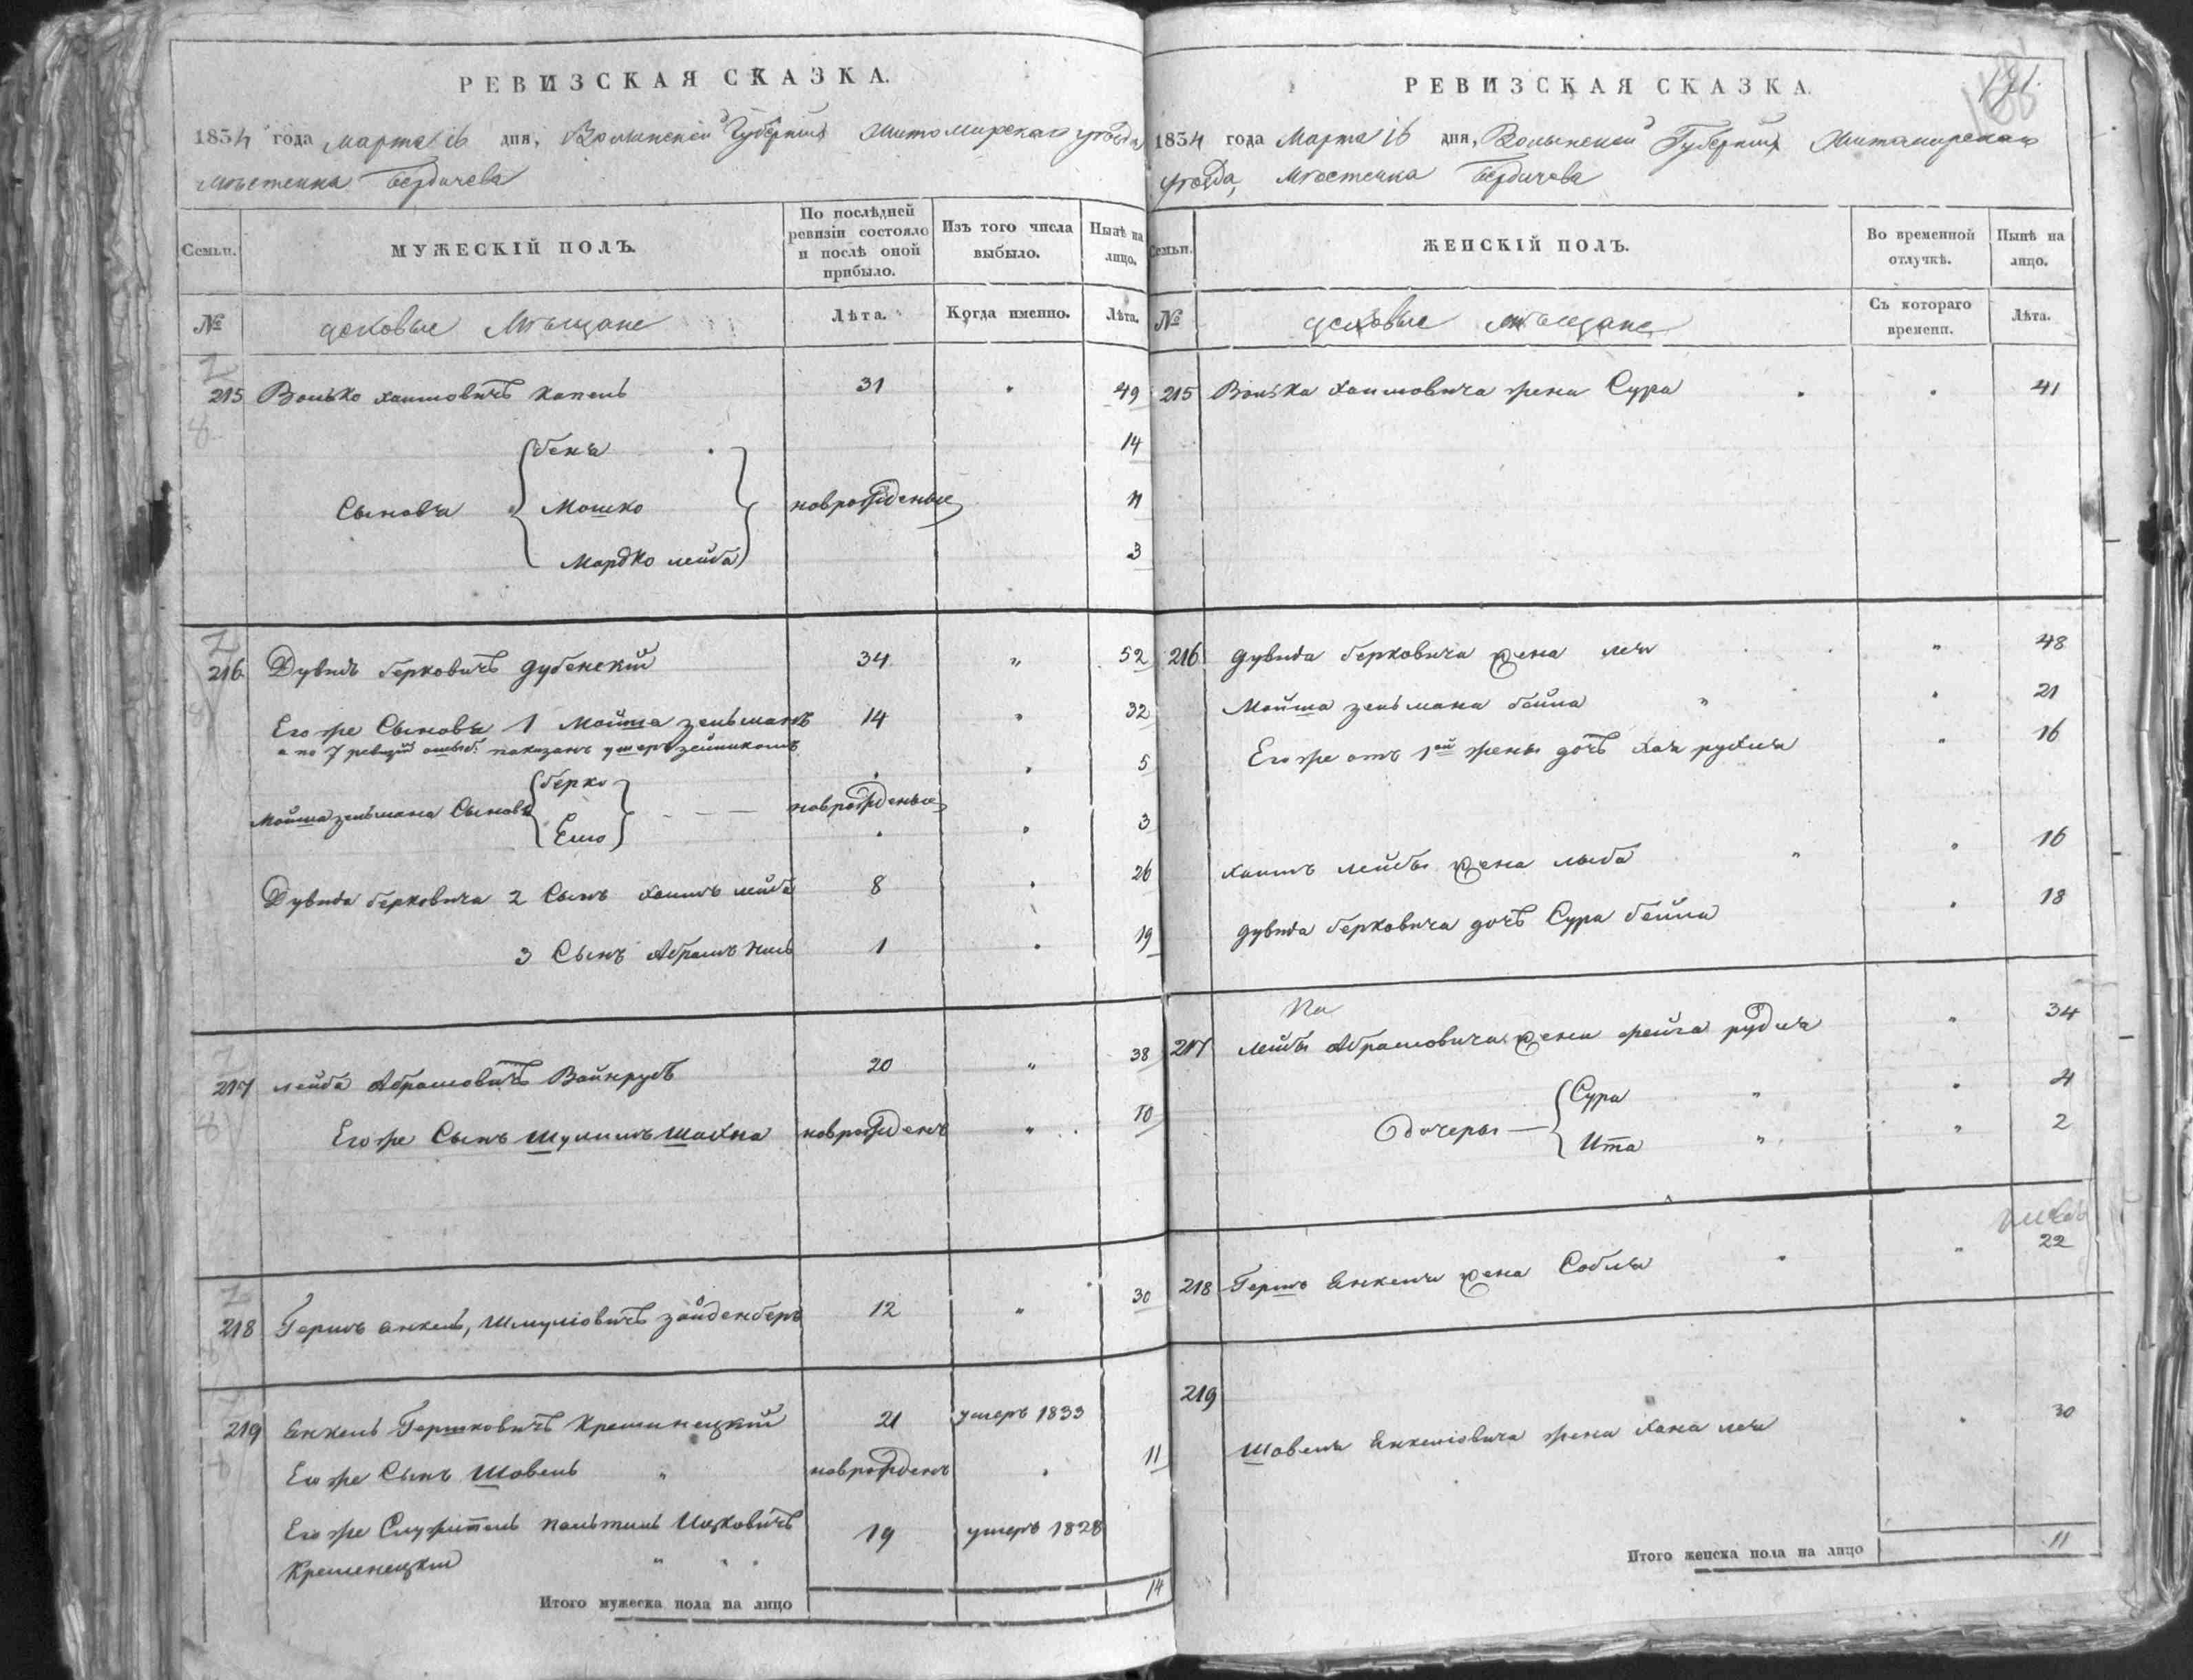 РЕВИЗСКАЯ СКАЗКА.
1834 года Марта 16 дня, Волынской Губерніи Житомирскаго уѣзда
Мѣстечка Бердичева
Семьи.
МУЖЕСКІЙ ПОЛЪ.
По послѣдней ревизіи состояло и послѣ оной прибыло.
Изъ того числа выбыло.
Нынѣ на лицо.
№
цеховые Мѣщане
Лѣта.
Когда именно.
Лѣта.
215 Волько Хаимовичъ Капель 31 49
14
Сыновья Мошко новрожденые
Мордко лейба 3
216 Дувидъ берковичъ дубенскій 34 " 52
Его же Сыновья 1 Мойша зельманъ 14 " 32
а по 7 ревизіи показанъ умеръ
берко 5
Мойша зельмана Сыновья новрожденые
3
Дувида берковича 2 Сынъ хаимъ лейба 8 26
3 Сынъ Абрамъ 1 19
217 лейба Абрамовичъ Вайнрубъ 20 " 38
Его же Сынъ Шулимъ Шахна новрожденъ " 10
218 Гершъ янкель, Шмуліовичъ зайденберъ 12 " 30
219 Янкель Гершковичъ Кременецкій 21 умеръ 1833
Его же Сынъ Шовель " новрожденъ 11
Его же Служитель пальтиель Ицковичъ 19 умеръ 1828
Кременецкій "
Итого мужеска пола на лицо 14
РЕВИЗСКАЯ СКАЗКА.
191.
1834 года Марта 16 дня, Волынской Губерніи Житомирскаго
уѣзда, Мѣстечка Бердичева
Семьи.
ЖЕНСКІЙ ПОЛЪ.
Во временной отлучкѣ.
Нынѣ на лицо.
№
цеховые мѣщане
Съ котораго времени.
Лѣта.
215 Волька Хаимовича жена Сура 41
216 дувида берковича жена лея " 48
Мойша зельмана бейла " 21
Его же отъ 1ой жены дочь хая рухля " 16
хаимъ лейбы жена люба " 16
дувида берковича дочь Сура бейла 18
217 лейбы Абрамовича жена фейга рудля " 34
Сура " 4
дочеры
Ита " " 2
218 Гершъ Янкеля жена Собля " 22
219
Шовеля Янкеліовича жена хана лея 30
Итого женска пола на лицо 11